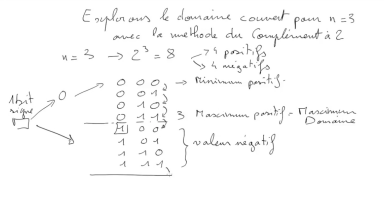 Explorons le domaine couvert pour n=3
avec la méthode du Complément à 2
n=3 → 2³=8 → 4 positifs
→ 4 négatifs
1 bit signe
0
0 0 0 → Minimum positif
0 0 1
0 1 0
0 1 1 3 Maximum positif = Maximum Domaine
1 0 0
1 0 1
1 1 0
1 1 1
valeur négatif